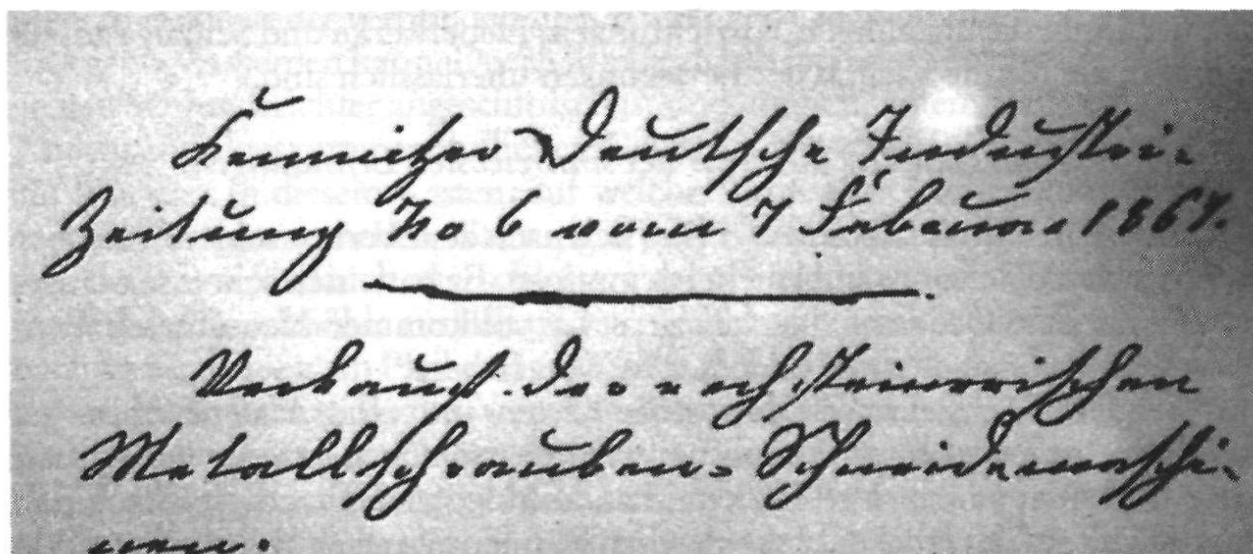 Kemnitzer Deutsche Industrie-
Zeitung No 6 vom 7 Februar 1867.
Verkauf der rechsteinerischen
Metallschrauben-Schneidemaschi-
nen.